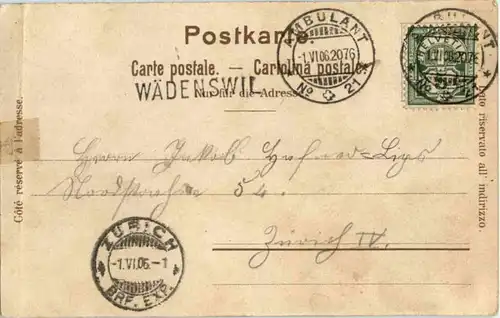 Postkarte
Carte postale. — Cartolina postale
WÄDENSWIL
Nur für die Adresse
AMBULANT
-1.VI.06.2076
No 21
AMBULANT
-1.VI.06.2076
No
Côté réservé à l'adresse.
Lato riservato all' indirizzo.
Herrn Jakob Hafner-Lips
Nordstrasse 54.
Zürich IV.
ZÜRICH
-1.VI.06.-1
BRF. EXP.